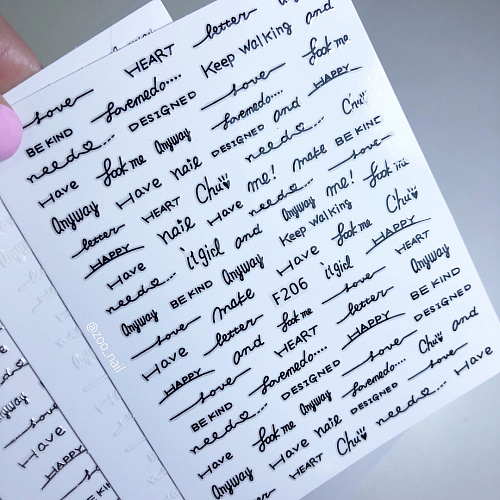 letter and
HEART Keep Walking
love lovemedo.... love look me
BE KIND DESIGNED lovemedo... and HAPPY
need♡... Anyway DESIGNED need♡... Chu
Have look me nail me! make BE KIND
Anyway Have Chu♥ need♡... love
letter HEART Have Anyway me! look me
HAPPY nail and Keep Walking Chu♥
Have it girl Have look me HAPPY
need♡... BE KIND Anyway it girl HEART
Anyway make F206 love Anyway
love letter look me letter BE KIND
Have and HEART HAPPY DESIGNED
HAPPY lovemedo.... love Chu♥ and
love DESIGNED lovemedo.... love
BE KIND Anyway DESIGNED Have
need♡... look me nail need♡...
Have Have Chu♥
Anyway HEART
letter
@zoo_nail